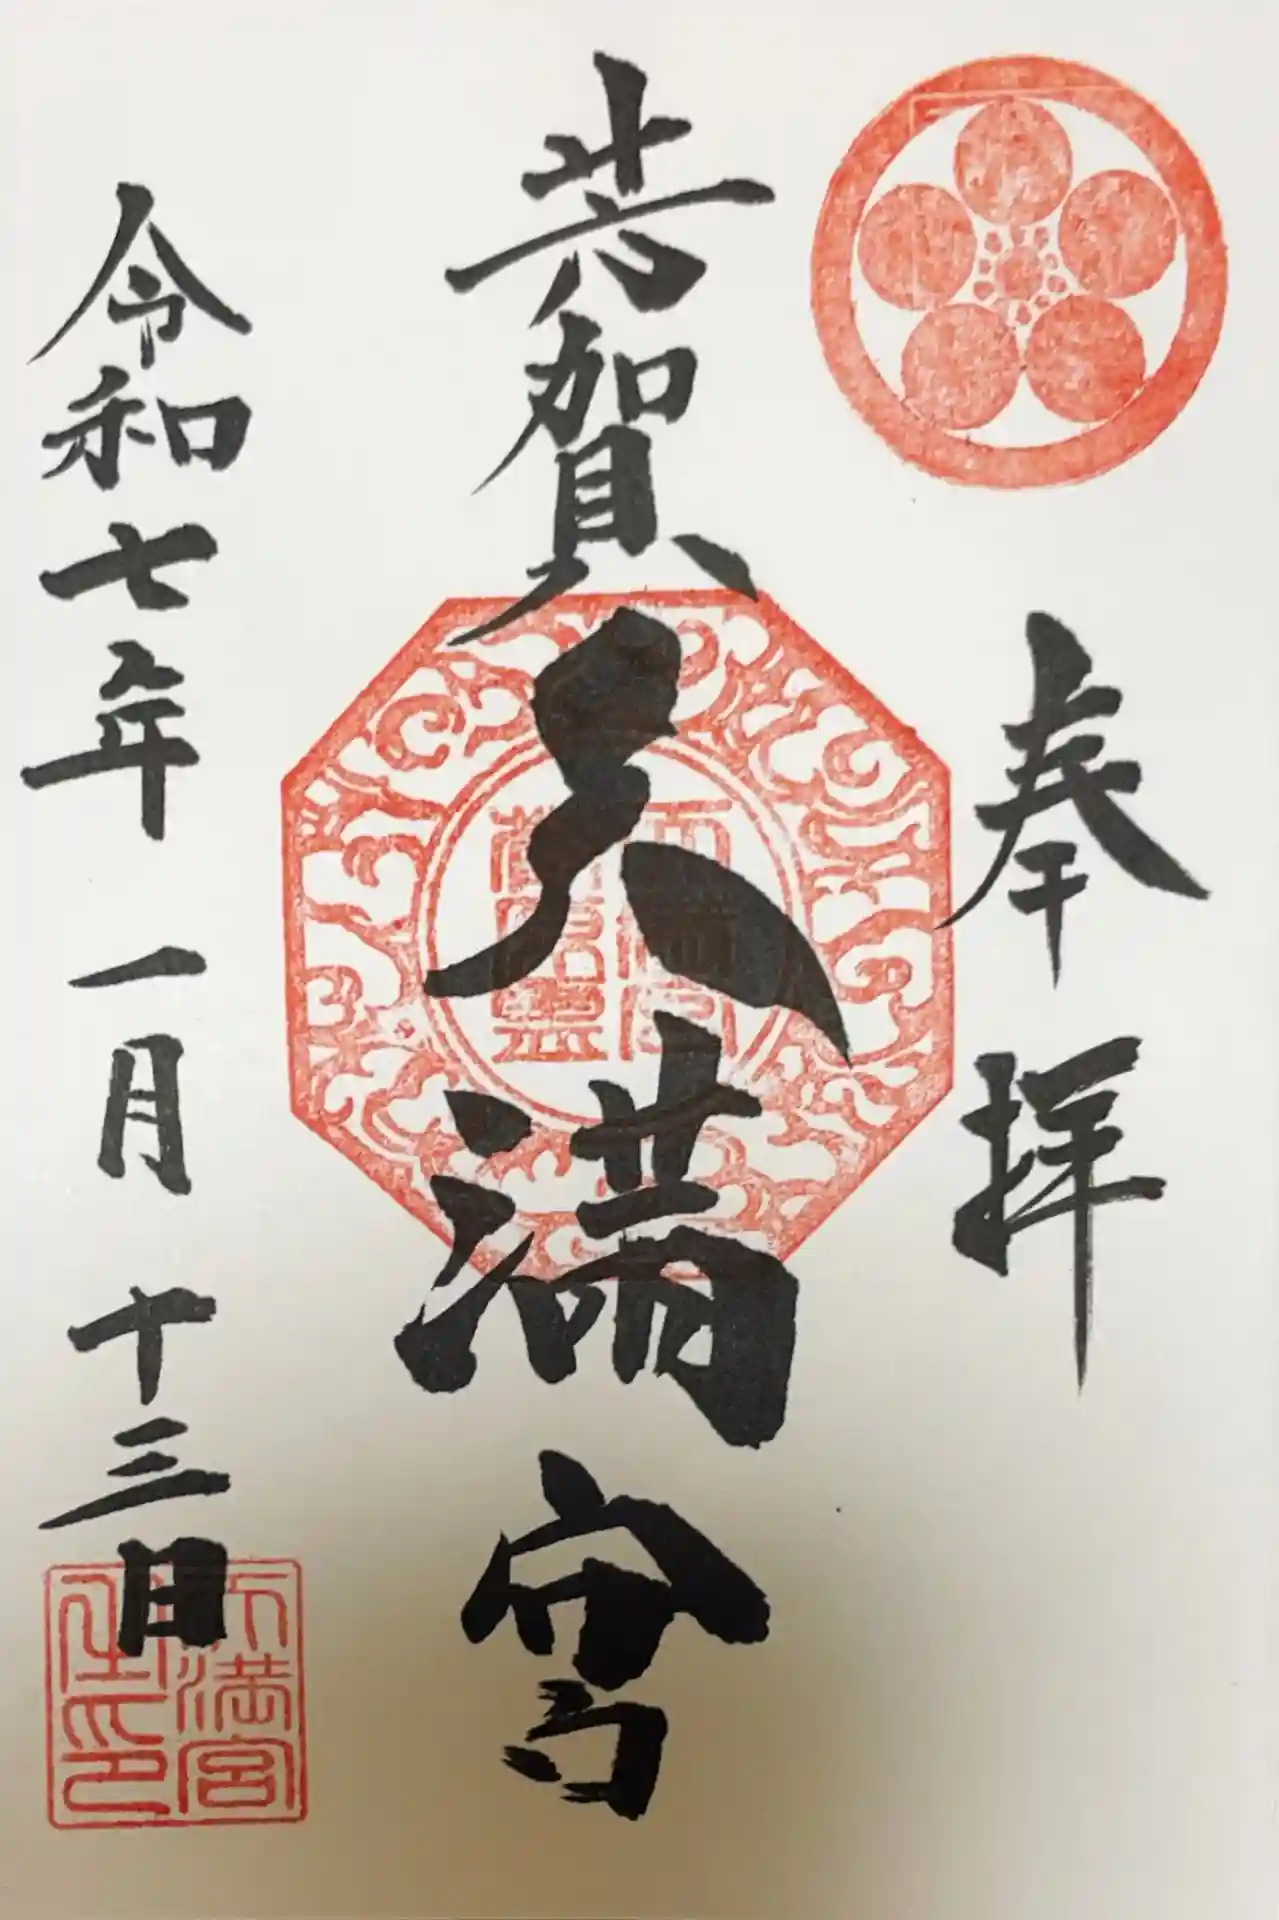 奉拝
賀天満宮
令和七年 一月 十三日
天満宮